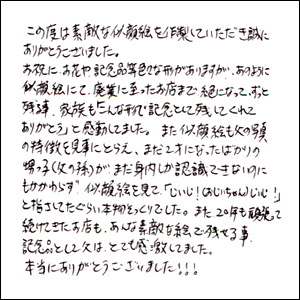 この度は素敵な似顔絵を作製していただき誠に
ありがとうございました。
お祝に、お花や記念品等色々な形がありますが、あのように
似顔絵にて、廃業に至ったお店まで絵になって、ずっと
残る事、家族も「こんな形で記念として残してくれて
ありがとう」と感動しました。また似顔絵も父の顔
の特徴を見事にとらえ、まだ2才になったばかりの
甥っ子(父の孫)が、まだ身内しか認識できないのに
もかかわらず"似顔絵を見て「じいじ!(おじいちゃん)じいじ!」
と指さしてたぐらい本物そっくりでした。また20年も頑張って
続けてきたお店も、あんな素敵な絵で残せる事、
記念品として父は、とても感激してました。
本当にありがとうございました!!!